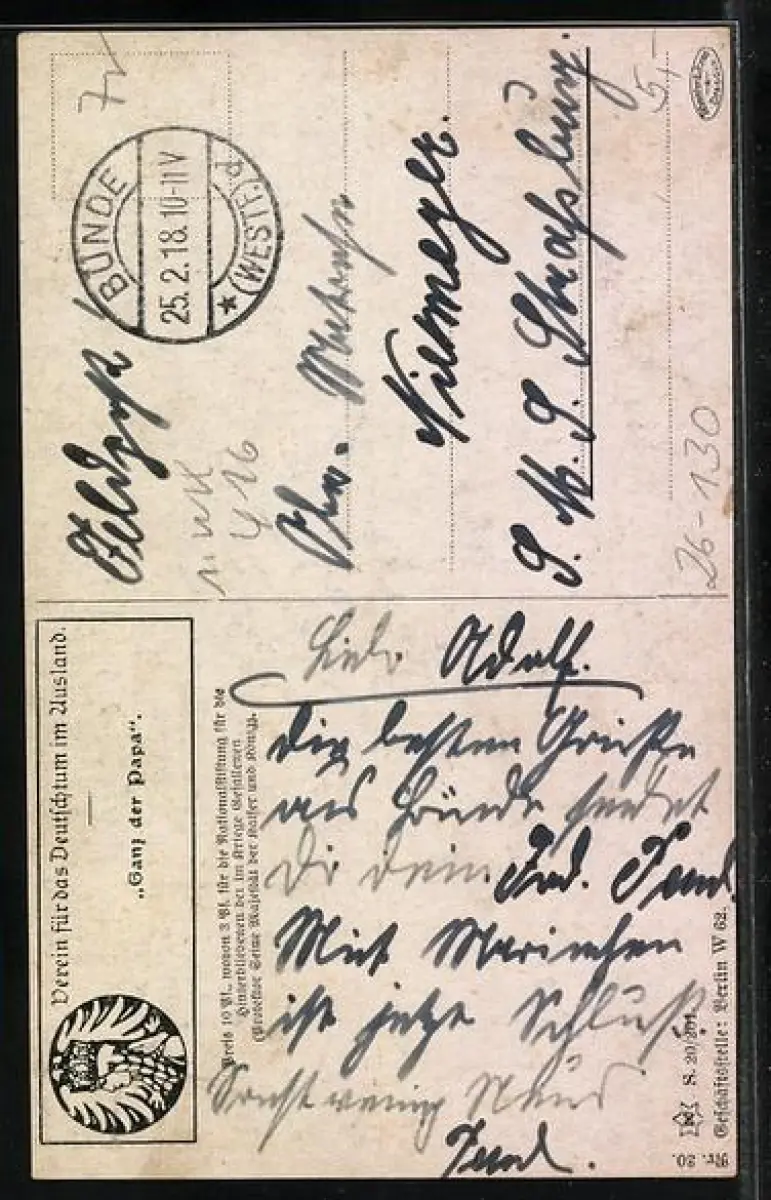 Verein für das Deutschtum im Ausland.
„Ganz der Papa“.
Preis 10 Pf., wovon 3 Pf. für die Nationalstiftung für die
Hinterbliebenen der im Kriege Gefallenen
(Protektor Seine Majestät der Kaiser und König).
Lieber Adolf.
Die besten Grüße
aus Bünde sendet
Dir dein Fred.
Mit Mariechen
ist jetzt Schluß.
Sonst wenig Neues
Nr. 30.
S. 20/201
Geschäftsstelle: Berlin W 62.
Feldpost
BÜNDE
25.2.18.10-11V
* (WESTF.) d
An. Matrosen
Niemeyer.
S. M. S. Straßburg.
26-130
5,-